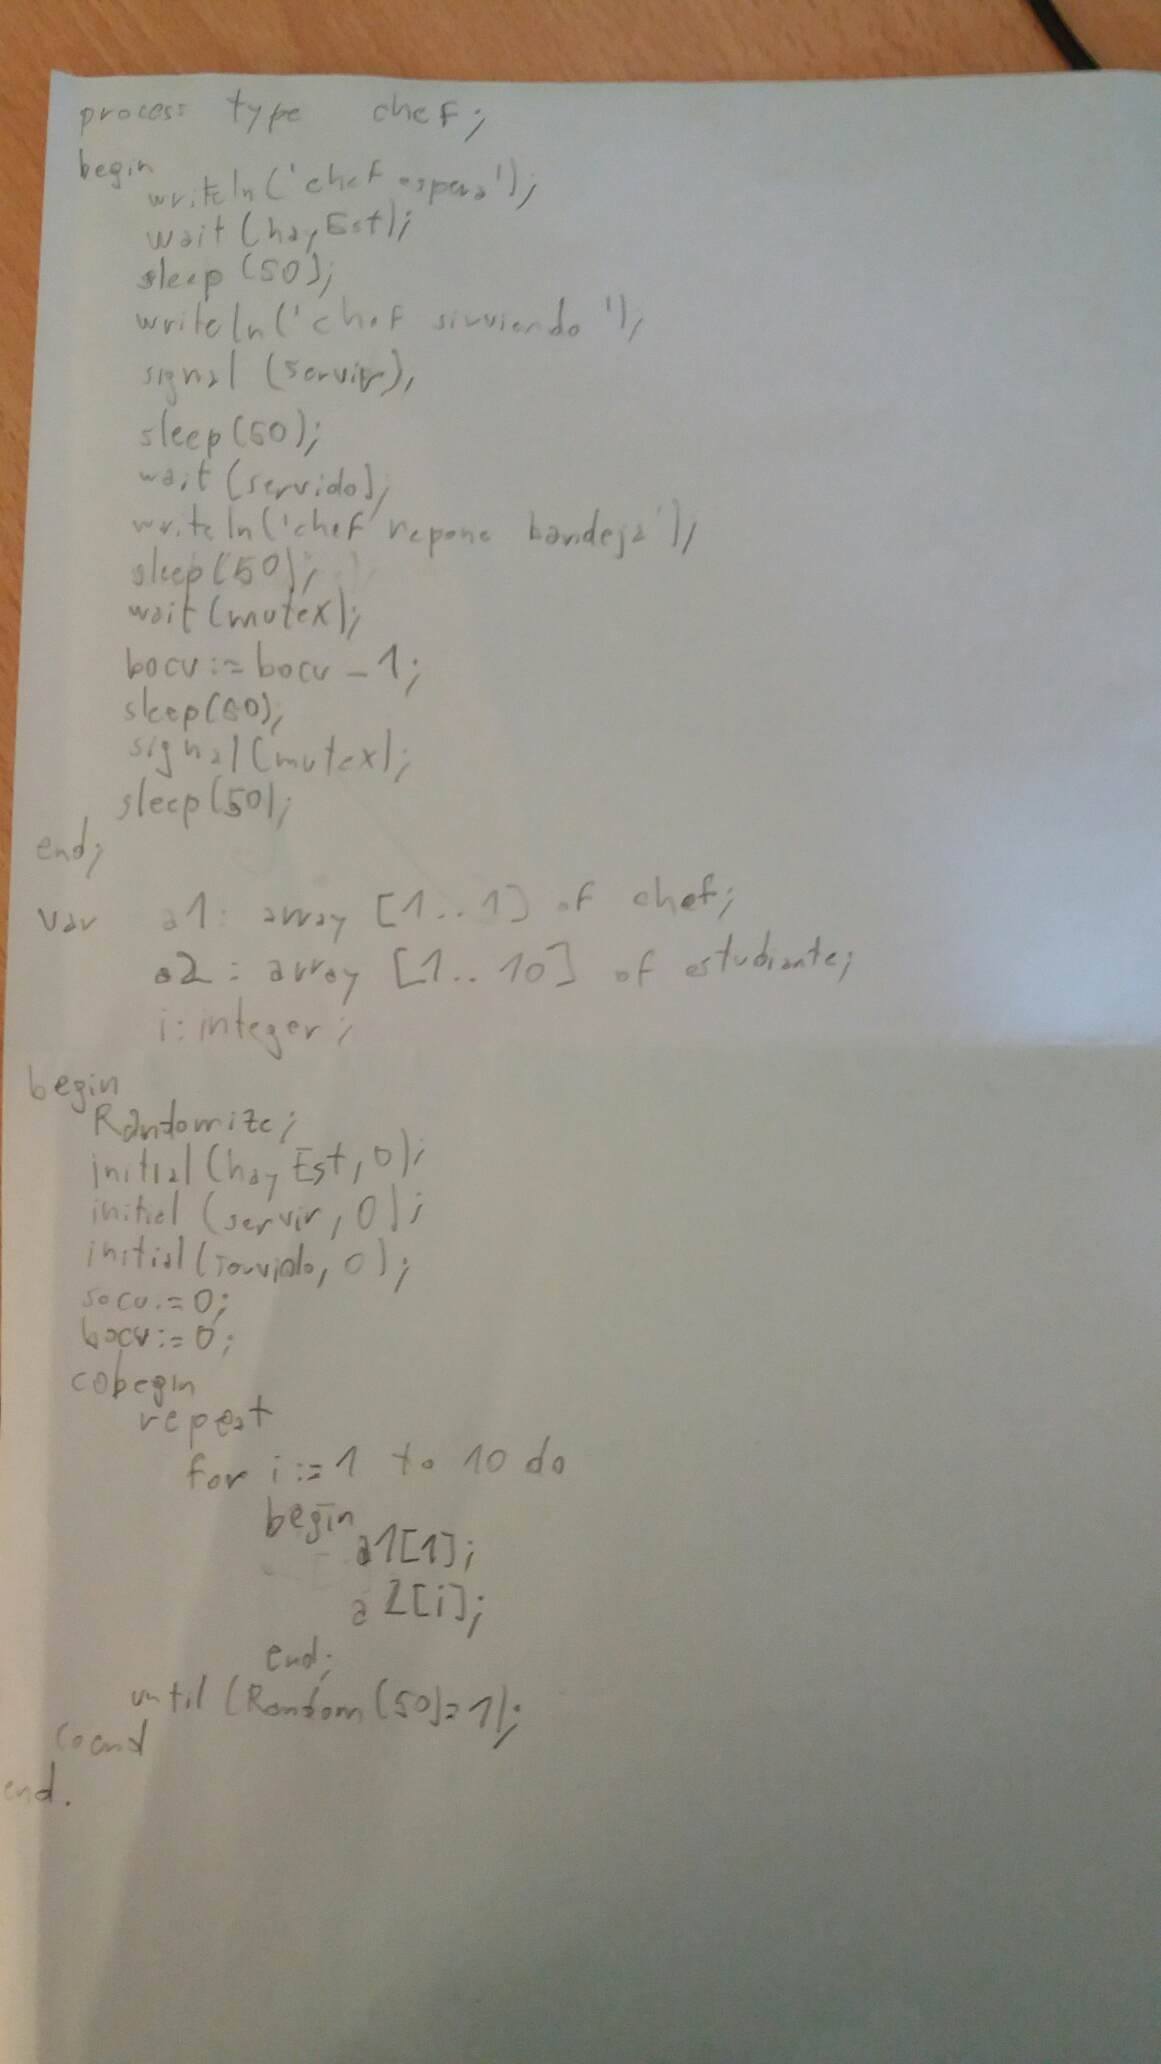 process type chef;
begin
writeln('chef espera');
wait (hayEst);
sleep (50);
writeln('chef sirviendo');
signal (servir);
sleep (50);
wait (servido);
writeln('chef repone bandeja');
sleep (50);
wait (mutex);
bocu := bocu - 1;
sleep (50);
signal (mutex);
sleep (50);
end;
var a1: array [1..1] of chef;
a2: array [1..10] of estudiante;
i: integer;
begin
Randomize;
initial (hayEst, 0);
initial (servir, 0);
initial (servido, 0);
socu:=0;
bocu:=0;
cobegin
repeat
for i:=1 to 10 do
begin
a1[1];
a2[i];
end;
until (Random(50)=1);
coend
end.